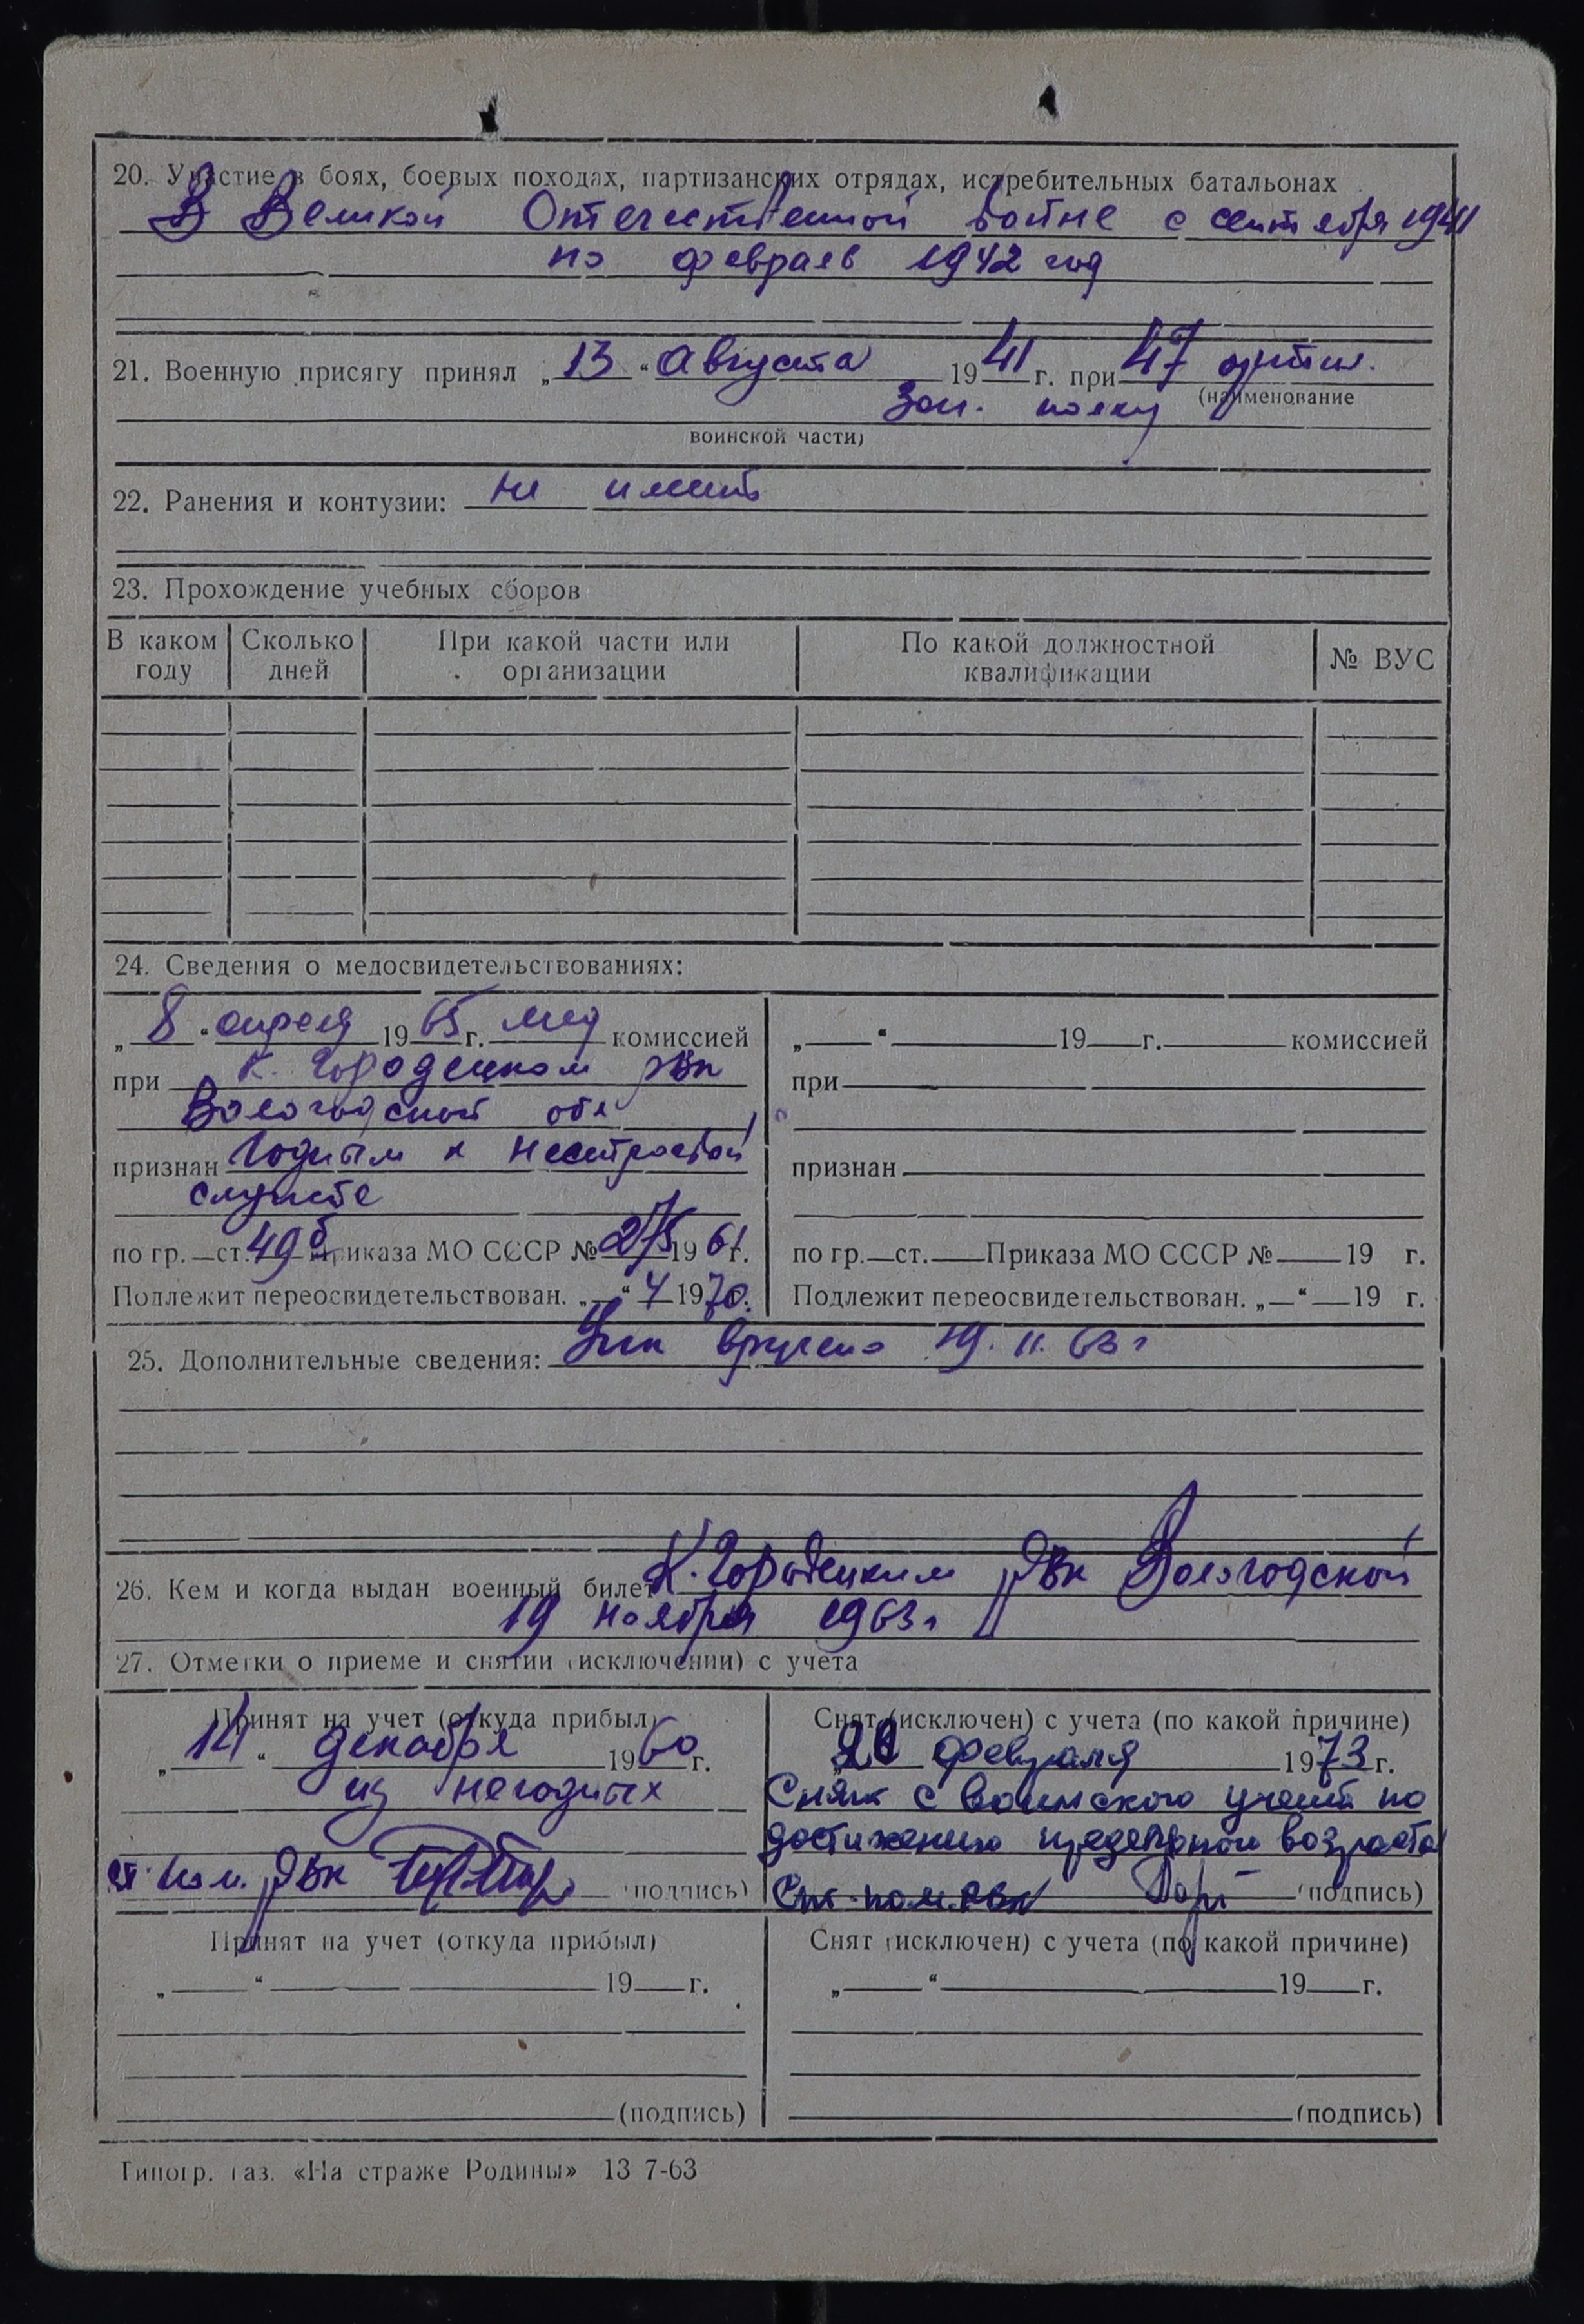 20. Участие в боях, боевых походах, партизанских отрядах, истребительных батальонах
В Великой Отечественной войне с сентября 1941
по февраль 1942 год
21. Военную присягу принял „13“ августа 1941 г. при 47 артил.
(наименование
Зап. полку
воинской части)
22. Ранения и контузии: не имеет
23. Прохождение учебных сборов
В каком году
Сколько дней
При какой части или организации
По какой должностной квалификации
№ ВУС
24. Сведения о медосвидетельствованиях:
„8“ апреля 1965 г. мед комиссией
при К. Городецком РВК
Вологодской обл
признан Годным к нестроевой
службе
по гр.—ст. 49б Приказа МО СССР № 275 1961 г.
Подлежит переосвидетельствован. „—“ 4 1970 г.
„—“ 19 г. комиссией
при
признан
по гр.—ст.—Приказа МО СССР № 19 г.
Подлежит переосвидетельствован. „—“—19 г.
25. Дополнительные сведения: вручено 19. 11. 63 г
26. Кем и когда выдан военный билет К. Городецким РВК Вологодской
19 ноября 1963 г
27. Отметки о приеме и снятии (исключении) с учета
Принят на учет (откуда прибыл)
„14“ декабря 1960 г.
из негодных
ст. пом. РВК (подпись)
Снят (исключен) с учета (по какой причине)
февраля 1973 г.
Снят с воинского учета по
достижению предельного возраста
Ст. пом. РВК (подпись)
Принят на учет (откуда прибыл)
„—“ 19—г.
(подпись)
Снят (исключен) с учета (по какой причине)
„—“ 19—г.
(подпись)
Типогр. газ. «На страже Родины» 13 7-63